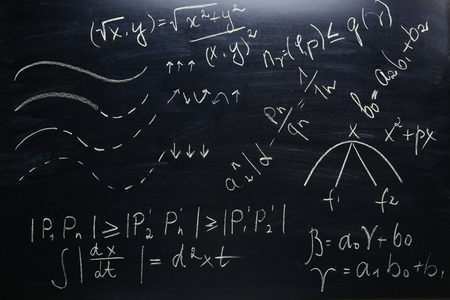 (√x, y) = √x² + y²
(x, y)²
↑↑↑
n₂ = (l, p) ≤ q(r)
1/1w
b₀ = a₀2b₁+b₂
pⁿ/qⁿ
x
x² + px
↓↓↓
f₁ f₂
|P₁ Pₙ| ≥ |P'₂ P'ₙ| ≥ |P'₁ P'₂|
∫|dx/dt| = d²xt
β = a₀γ + b₀
γ = a₁ b₀ + b₁